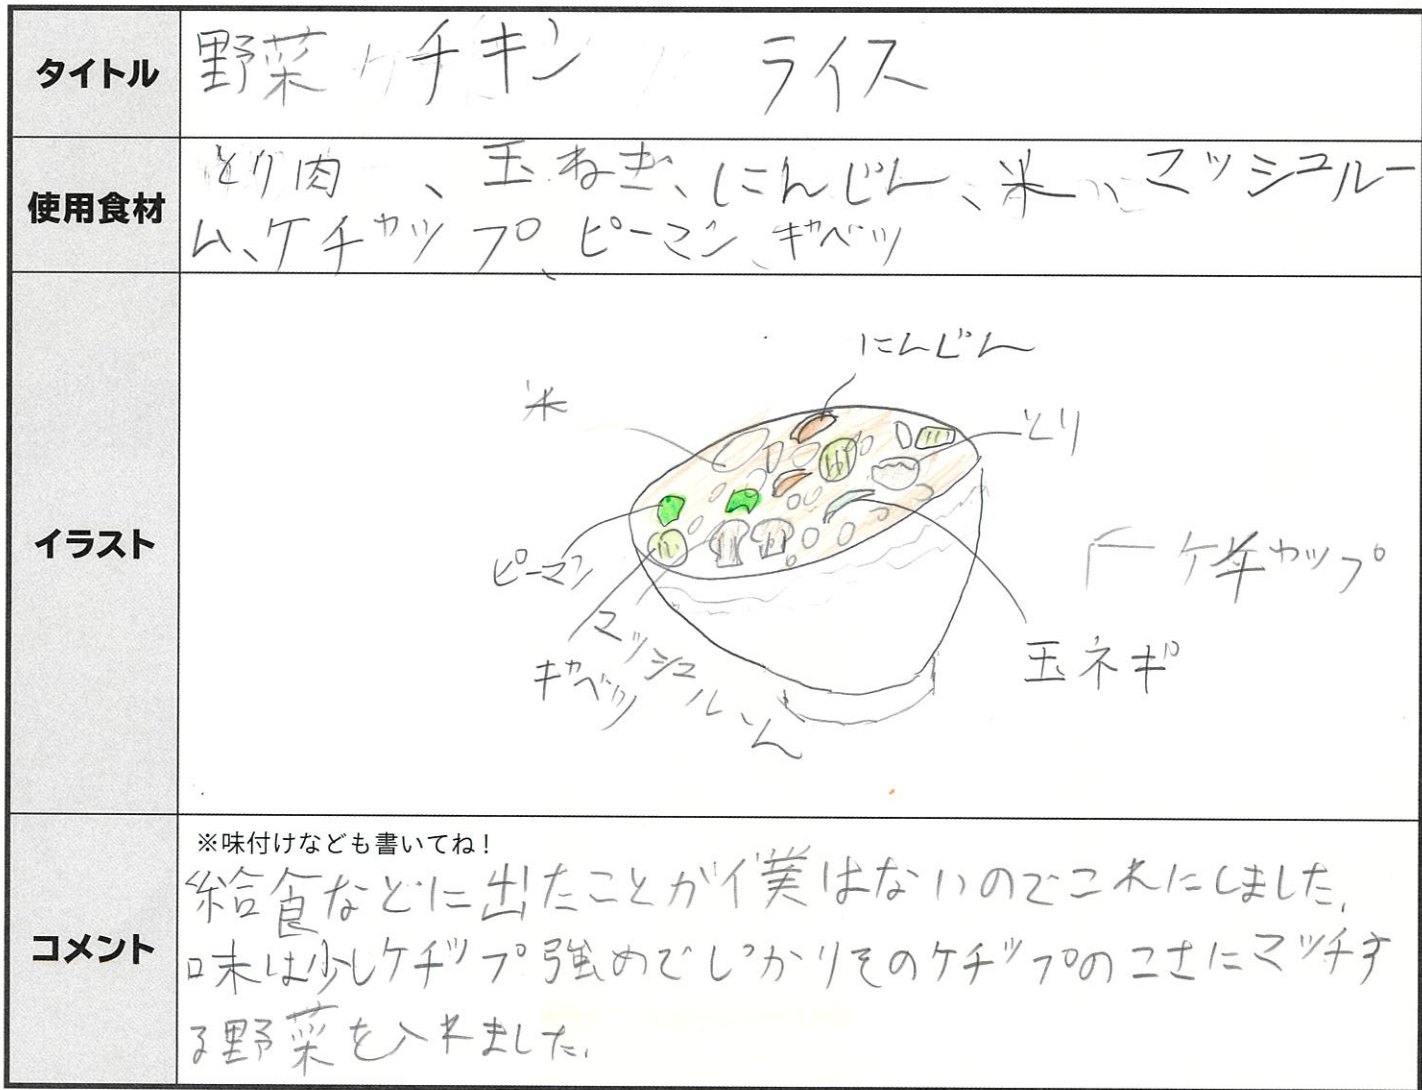 タイトル
野菜チキン ライス
使用食材
とり肉、玉ねぎ、にんじん、米、マッシュルー
ム、ケチャップ、ピーマン、キャベツ
イラスト
にんじん
米
とり
ピーマン
キャベツ
マッシュルーム
玉ネギ
ケチャップ
コメント
※味付けなども書いてね！
給食などに出たことが僕はないのでこれにしました。
味は少しケチャップ強めでしっかりそのケチャップのこさにマッチす
る野菜を入れました。